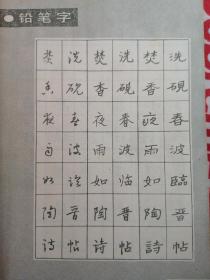 铅笔字
洗硯春波臨晋帖
焚香夜雨如陶詩
洗硯春波临晋帖
焚香夜雨如陶詩
洗砚春波临晋帖
焚香夜雨如陶诗